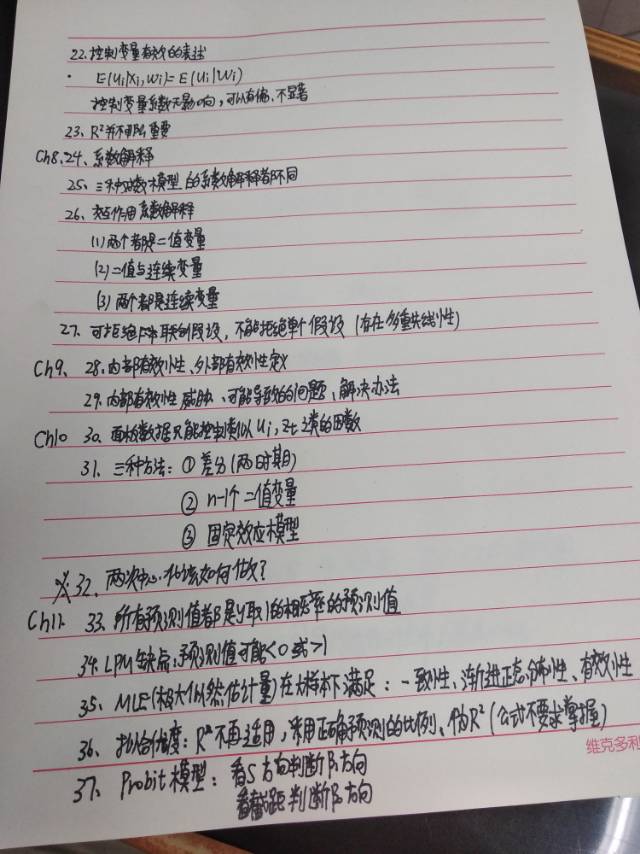 22. 控制变量有效的表述
· E(ui|Xi,Wi)=E(ui|Wi)
控制变量系数无影响，可以有偏、不显著
23. R²并不那么重要
Ch8. 24. 系数解释
25. 三种对数模型的系数解释都不同
26. 交互作用系数解释
(1) 两个都是二值变量
(2) 二值与连续变量
(3) 两个都是连续变量
27. 可拒绝联合假设，不能拒绝单个假设（存在多重共线性）
Ch9. 28. 内部有效性、外部有效性定义
29. 内部有效性威胁、可能导致的问题、解决办法
Ch10 30. 面板数据只能控制类似ui，zt这类的因数
31. 三种方法：① 差分（两时期）
② n-1个二值变量
③ 固定效应模型
※32. 两次中心化该如何做？
Ch11. 33. 所有预测值都是y取1的概率的预测值
34. LPM缺点：预测值可能<0或>1
35. MLE(极大似然估计量)在大样本下满足：一致性、渐进正态分布性、有效性
36. 拟合优度：R²不再适用，采用正确预测的比例、伪R²(公式不要求掌握)
37. Probit模型：看S方向判断β方向
看截距判断β方向
维克多利